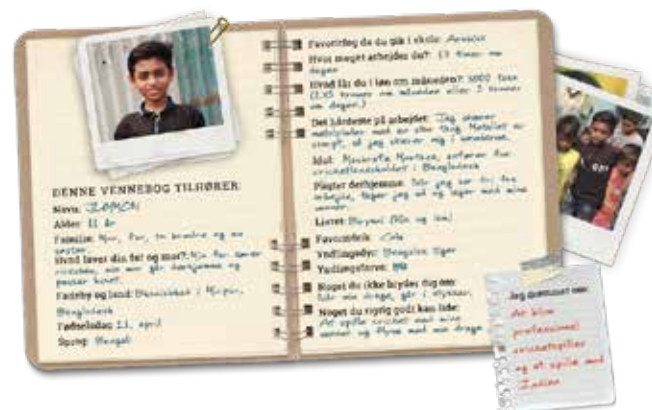 DENNE VENNEBOG TILHØRER:
Navn:
Alder: 11 år
Familie: Mor, far, to brødre og en
søster.
Hvad laver din far og mor?: Min far kører
rickshaw, min mor går derhjemme og
passer huset.
Fødeby og land: i Mirpur,
Bangladesh
Fødselsdag: 11. april
Sprog: Bengali
Favoritfag da du gik i skole: Arabisk
Hvor meget arbejder du?: 13 timer om
dagen
Hvad får du i løn om måneden?: 3000 Taka
kroner om måneden eller 5 kroner
om dagen.)
Det hårdeste på arbejdet: Jeg skærer
metalplader med en stor Metallet er
skarpt, så jeg skærer mig i
Idol: Mortaza, anfører for
cricketlandsholdet i Bangladesh
Pligter derhjemme: Når jeg har fri fra
arbejde, tager jeg ud og leger med mine
venner.
Livret: Biryani (Ris og
Favoritdrik: Cola
Yndlingsdyr: Bengalsk tiger
Yndlingsfarve: Blå
Noget du ikke bryder dig om:
Når min drage går i stykker.
Noget du rigtig godt kan lide:
At spille cricket med mine
venner og flyve med min drage
Jeg drømmer om:
At blive
professionel
cricketspiller
og at spille mod
Indien